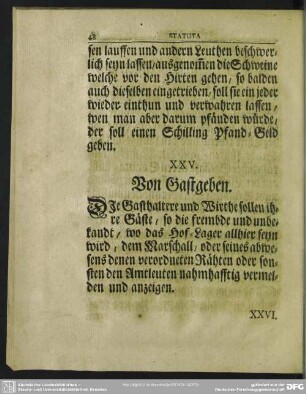 48 STATUTA
sen lauffen und andern Leuthen beschwer-
lich seyn lassen/ausgenom̃en die Schweine
welche vor den Hirten gehen, so balden
auch dieselben eingetrieben, soll sie ein jeder
wieder einthun und verwahren lassen,
wen man aber darum pfänden würde,
der soll einen Schilling Pfand-Geld
geben.
XXV.
Von Gastgeben.
DJe Gasthaltere und Wirthe sollen ih-
re Gäste, so die frembde und unbe-
kandt, wo das Hof-Lager allhier seyn
wird, dem Marschall, oder seines abwe-
sens denen verordneten Rähten oder son-
sten den Amtleuten nahmhafftig vermel-
den und anzeigen.
XXVI.